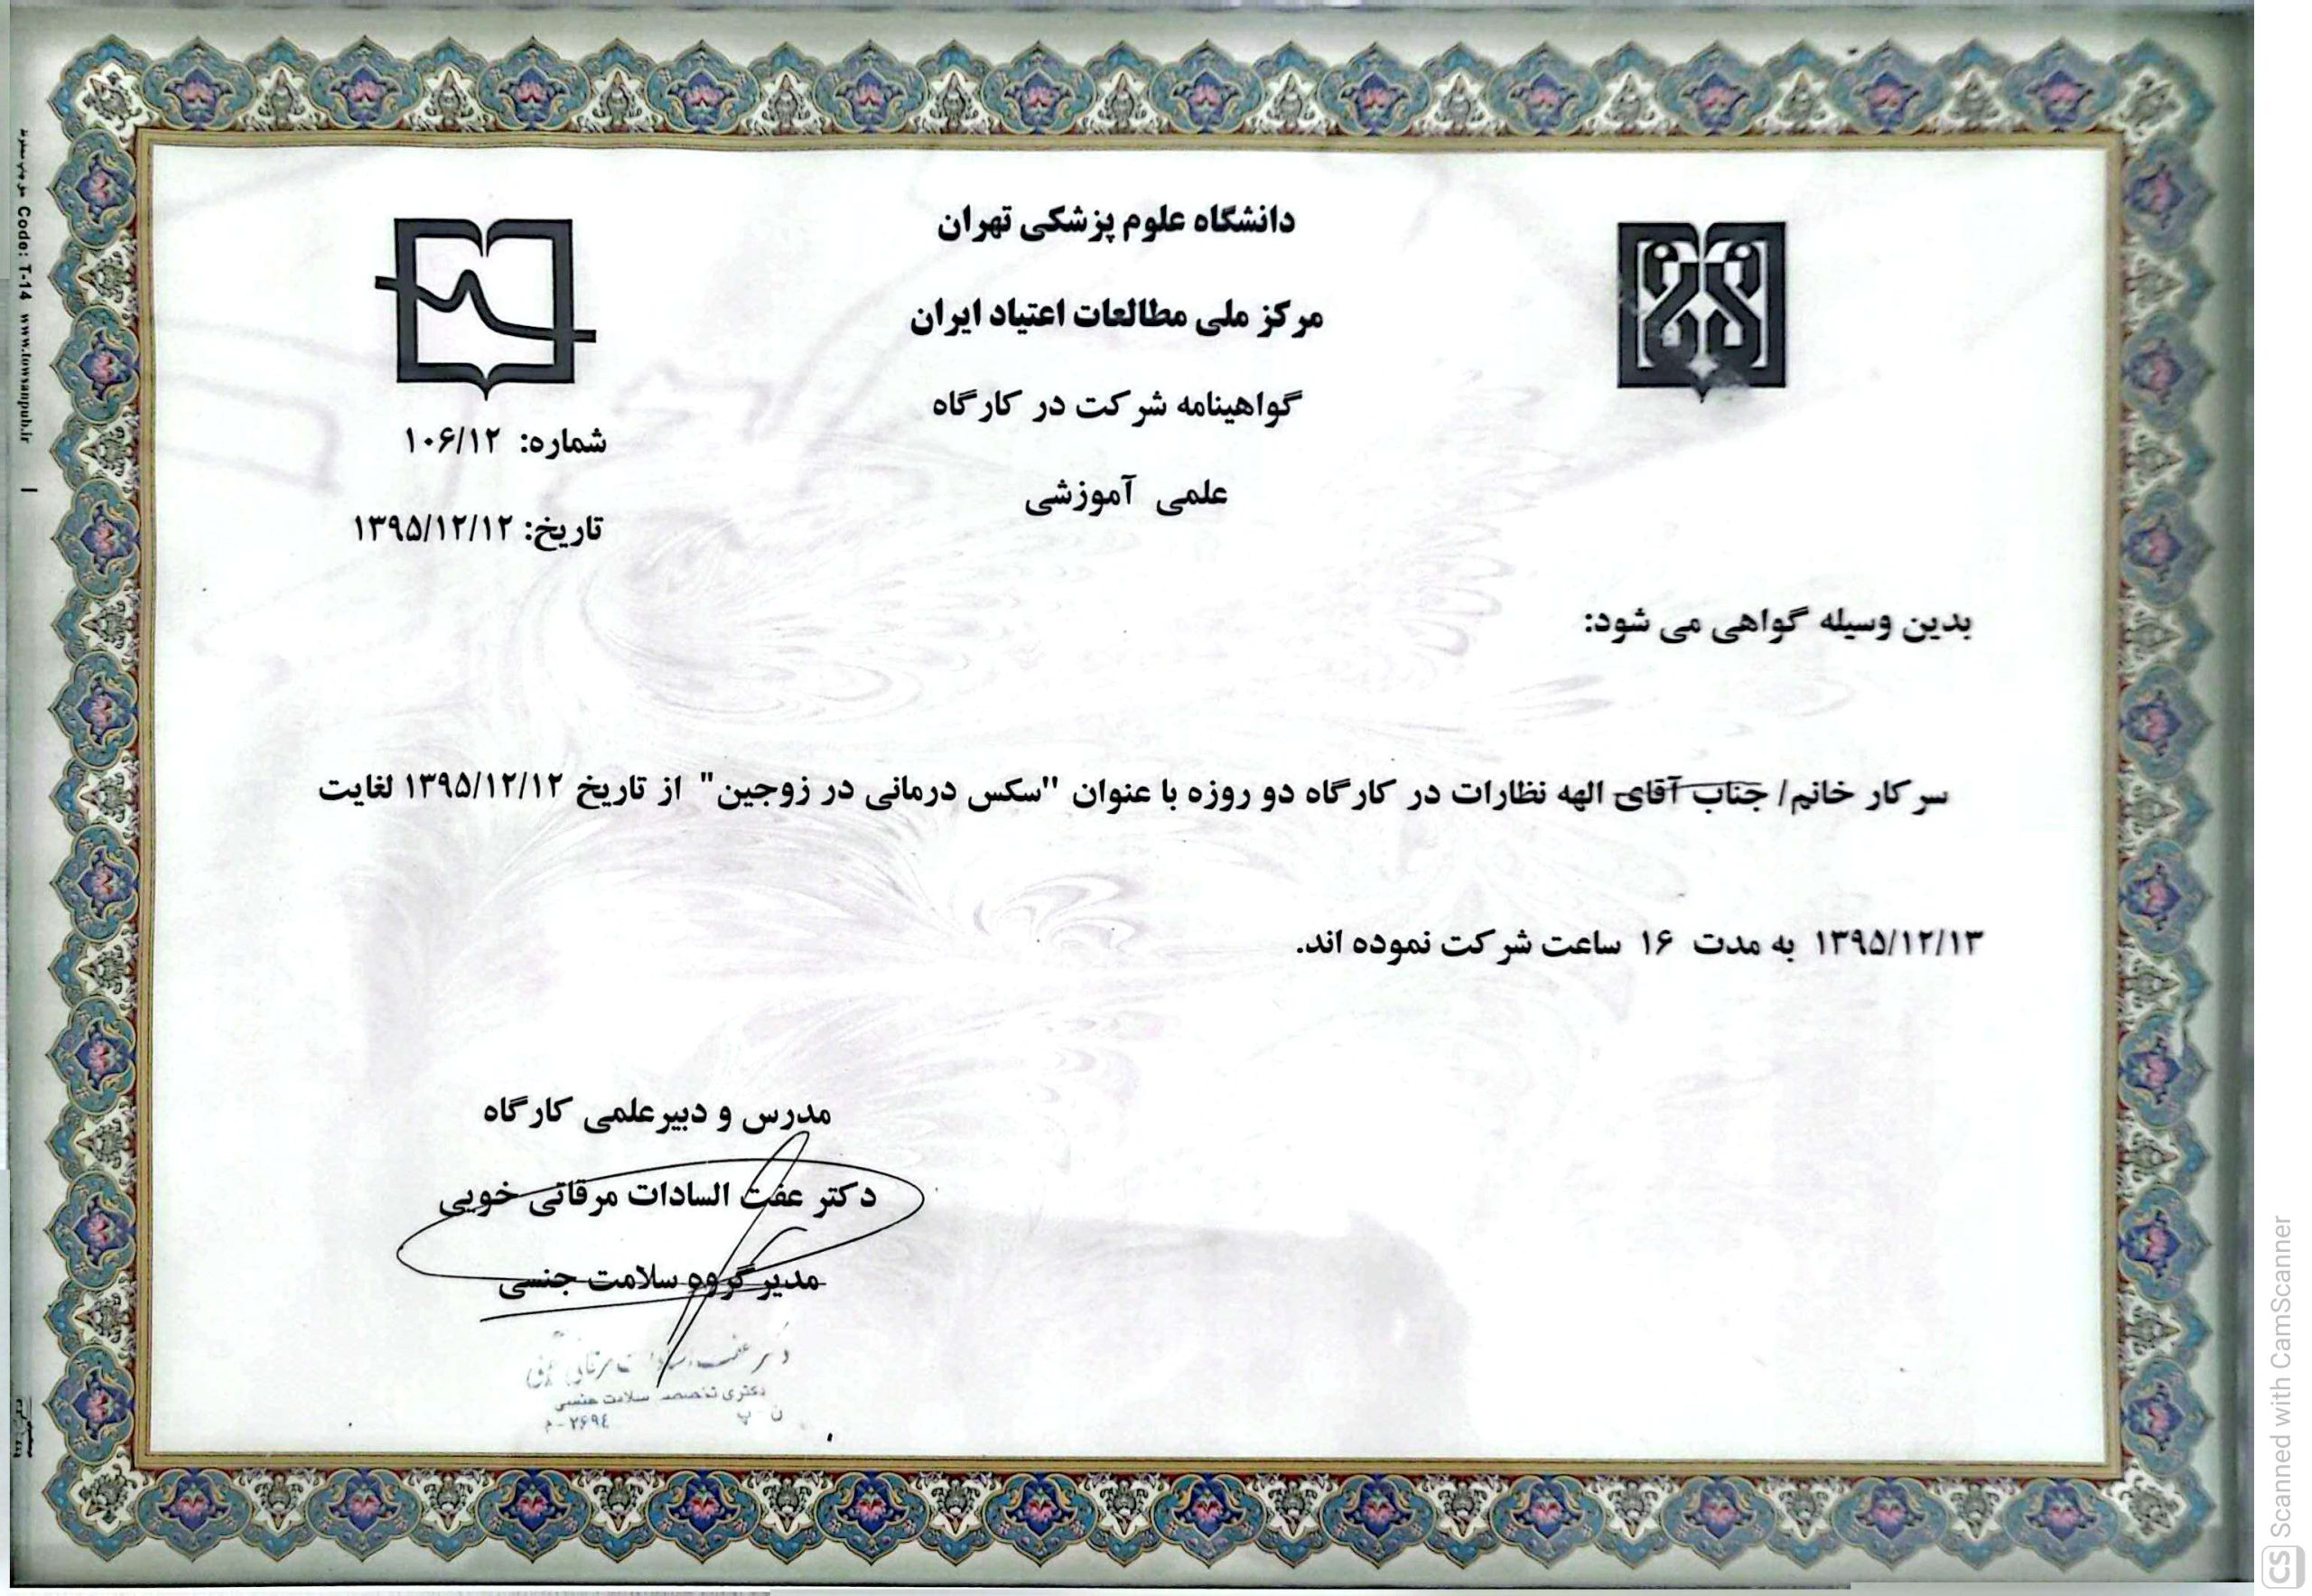 دانشگاه علوم پزشکی تهران
مرکز ملی مطالعات اعتیاد ایران
گواهینامه شرکت در کارگاه
علمی آموزشی
شماره: ۱۰۶/۱۲
تاریخ: ۱۳۹۵/۱۲/۱۲
بدین وسیله گواهی می شود:
سرکار خانم/ جناب آقای الهه نظارات در کارگاه دو روزه با عنوان "سکس درمانی در زوجین" از تاریخ ۱۳۹۵/۱۲/۱۲ لغایت
۱۳۹۵/۱۲/۱۳ به مدت ۱۶ ساعت شرکت نموده اند.
مدرس و دبیرعلمی کارگاه
دکتر عفت السادات مرقاتی خویی
مدیر گروه سلامت جنسی
سلامت جنسی
م-۲۶۹٤
Code: T-14 www.towsanpub.ir
CS Scanned with CamScanner